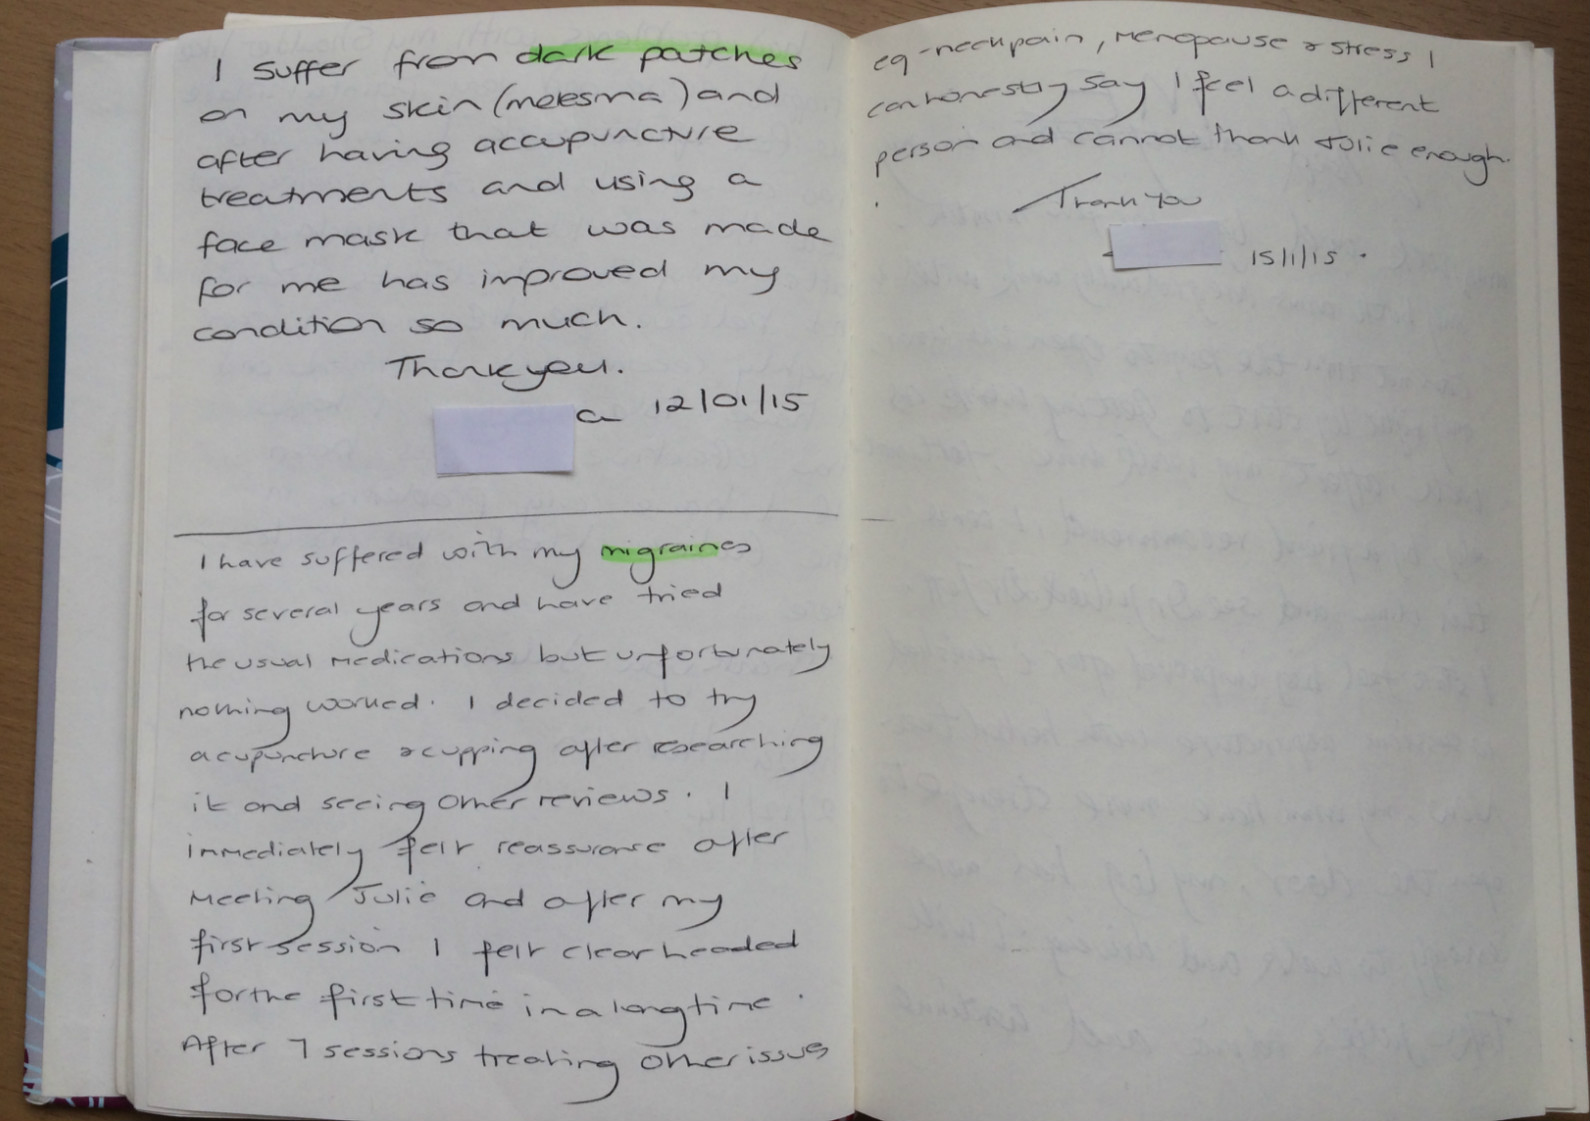 I suffer from dark patches
on my skin (melesma) and
after having accupuncture
treatments and using a
face mask that was made
for me has improved my
condition so much.
Thank you.
a 12/01/15
I have suffered with my migraines
for several years and have tried
the usual medications but unfortunately
nothing worked. I decided to try
acupuncture & cupping after researching
it and seeing other reviews. I
immediately felt reassurance after
meeting Julie and after my
first session I felt clear headed
for the first time in a long time.
After 7 sessions treating other issues
eg - neck pain, menopause & stress I
can honestly say I feel a different
person and cannot thank Julie enough.
Thank you
15/1/15.